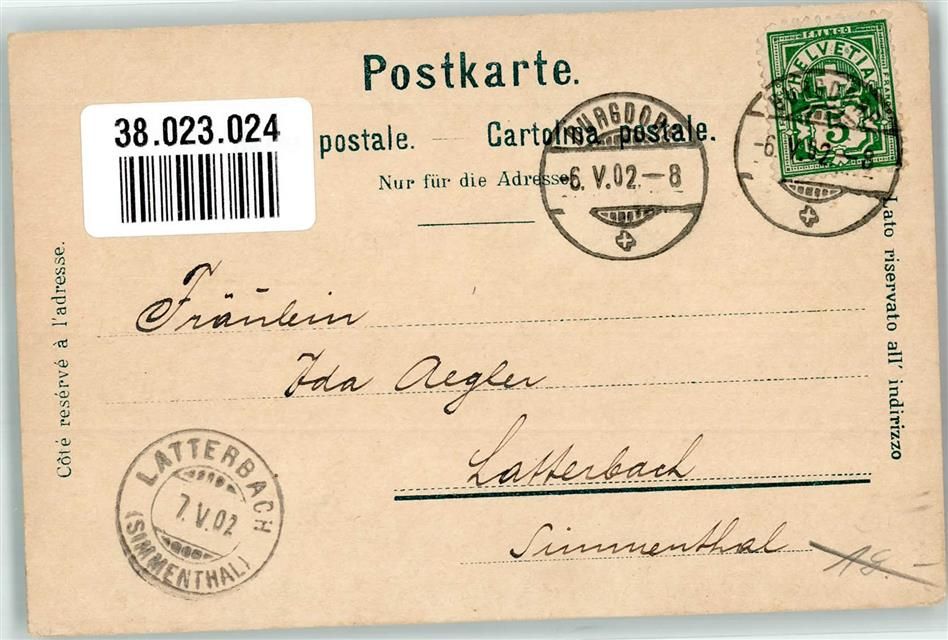 Postkarte.
38.023.024
postale. Cartolina postale.
Nur für die Adresse
BURGDORF
6. V. 02.-8
FRANCO
HELVETIA
5
BURGDORF
-6. V. 02.-8
Côté resérvé à l'adresse.
Lato riservato all' indirizzo
Fräulein
Ida Aegler
Latterbach
Simmenthal
LATTERBACH
7. V. 02
(SIMMENTHAL)